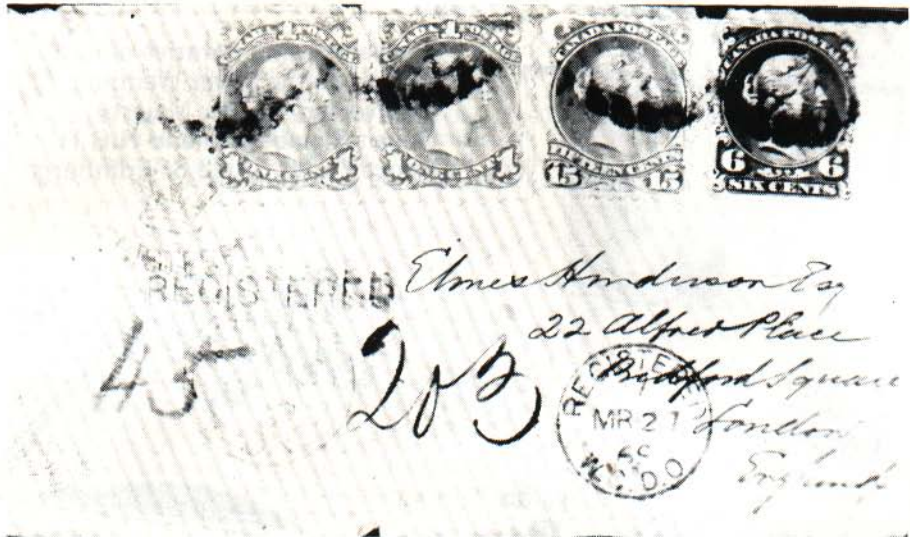 CANADA POSTAGE
1 ONE CENT 1
CANADA POSTAGE
1 ONE CENT 1
CANADA POSTAGE
FIFTEEN CENTS
15 15
CANADA POSTAGE
6 6
SIX CENTS
REGISTERED
45
203
Elmes Henderson Esq
22 Alfred Place
Bedford Square
London
England
REGISTERED
MR 27
W.C.D.O